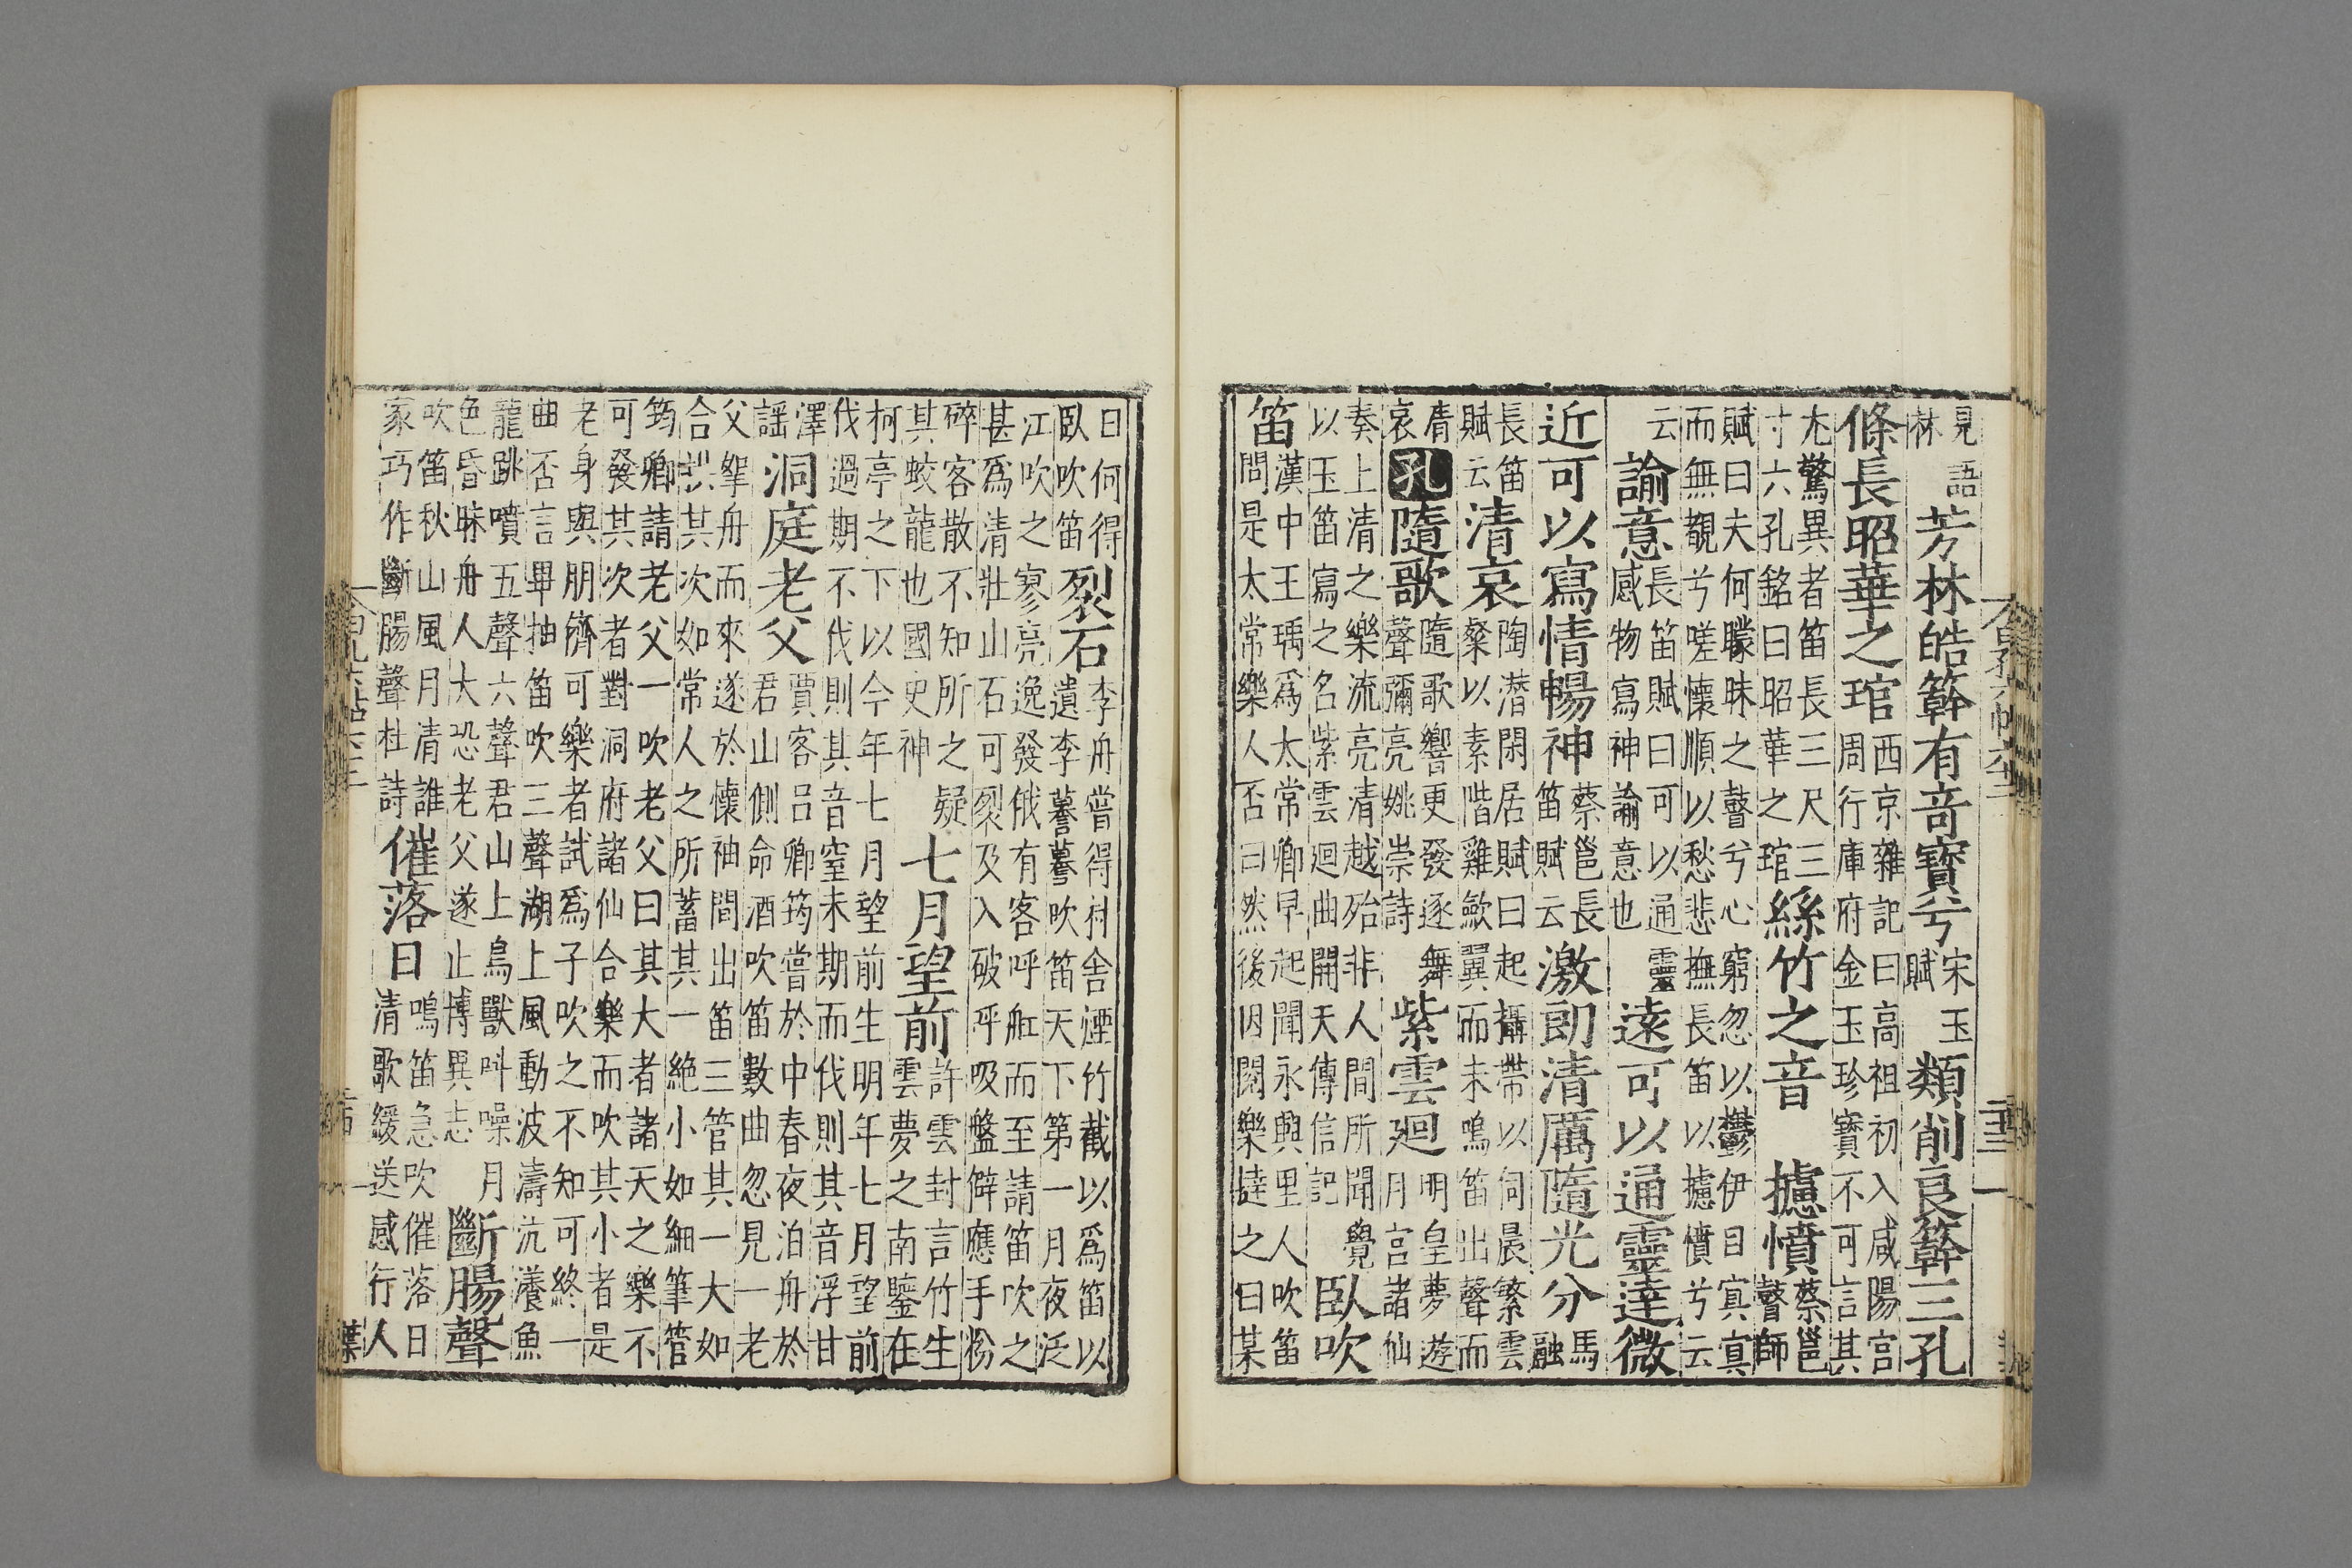 見語林芳林皓簳有竒寳兮宋玉賦類削良簳三孔
條長昭華之琯西京雜記曰高祖初入咸陽宮周行庫府金玉珍寳不可言其
尤驚異者笛長三尺三寸六孔銘曰昭華之琯絲竹之音　攄憤蔡邕瞽師
賦曰夫何矇昧之瞽兮心窮忽以鬱伊目㝠㝠而無覩兮嗟懷順以愁悲撫長笛以攄憤兮云
云諭意長笛賦曰可以通靈感物寫神諭意也遠可以通靈達微
近可以寫情暢神蔡邕長笛賦云激朗清厲隨光分馬融
長笛賦云清哀陶潜閑居賦曰起攝帶以伺晨繁雲粲以素階雞歛翼而未鳴笛出聲而
脣哀孔隨歌隨歌響更發逐舞聲彌亮姚崇詩紫雲廻明皇夢遊月宮諸仙
奏上清之樂流亮清越殆非人間所聞覺以玉笛寫之名紫雲迴曲開天傳信記臥吹
笛漢中王瑀爲太常卿早起聞永興里人吹笛問是太常樂人否曰然後因閱樂撻之曰某
日何得臥吹笛裂石李舟嘗得村舍煙竹截以爲笛以遺李謩謩吹笛天下第一月夜泛
江吹之寥亮逸發俄有客呼舡而至請笛吹之甚爲清壯山石可裂及入破呼吸盤僻應手粉
碎客散不知所之疑其蛟龍也國史神七月望前許雲封言竹生雲夢之南鑒在
柯亭之下以今年七月望前生明年七月望前伐過期不伐則其音窒未期而伐則其音浮甘
澤謡洞庭老父賈客吕卿筠嘗於中春夜泊舟於君山側命酒吹笛數曲忽見一老
父拏舟而來遂於懷袖間出笛三管其一大如合拱其次如常人之所蓄其一絶小如細筆管
筠卿請老父一吹老父曰其大者諸天之樂不可發其次者對洞府諸仙合樂而吹其小者是
老身與朋儕可樂者試爲子吹之不知可終一曲否言畢抽笛吹三聲湖上風動波濤沆瀁魚
龍跳噴五聲六聲君山上鳥獸呌噪月色昏昧舟人大恐老父遂止博異志斷腸聲
吹笛秋山風月清誰家巧作斷腸聲杜詩催落日鳴笛急吹催落日清歌緩送感行人